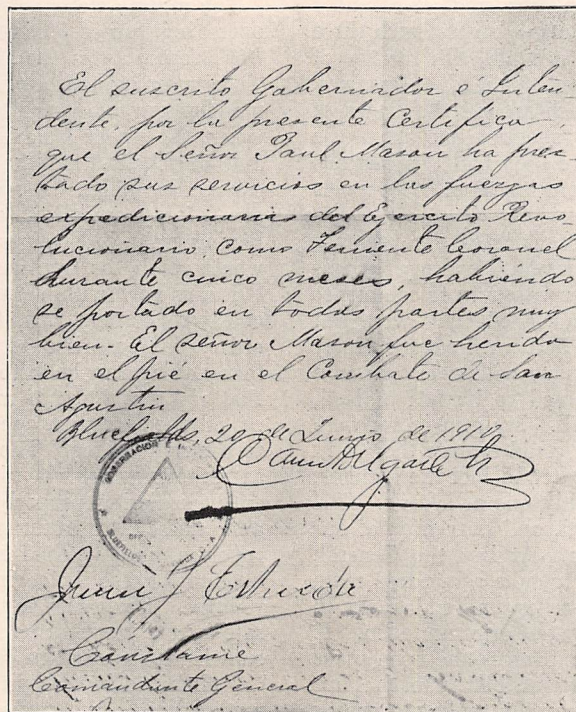 El suscrito Gobernador é Inten-
dente, por la presente Certifica
que el Señor Paul Mason ha pres-
tado sus servicios en las fuerzas
expedicionarias del Ejercito Revo-
lucionario, como Teniente Coronel
durante cinco meses, habiendo
se portado en todas partes muy
bien. El señor Mason fue herido
en el pié en el Combate de San
Agustin
Bluefields, 20 de Junio de 1910
GOBERNACION
BLUEFIELDS
Juan J Estrada
Constame
Comandante General